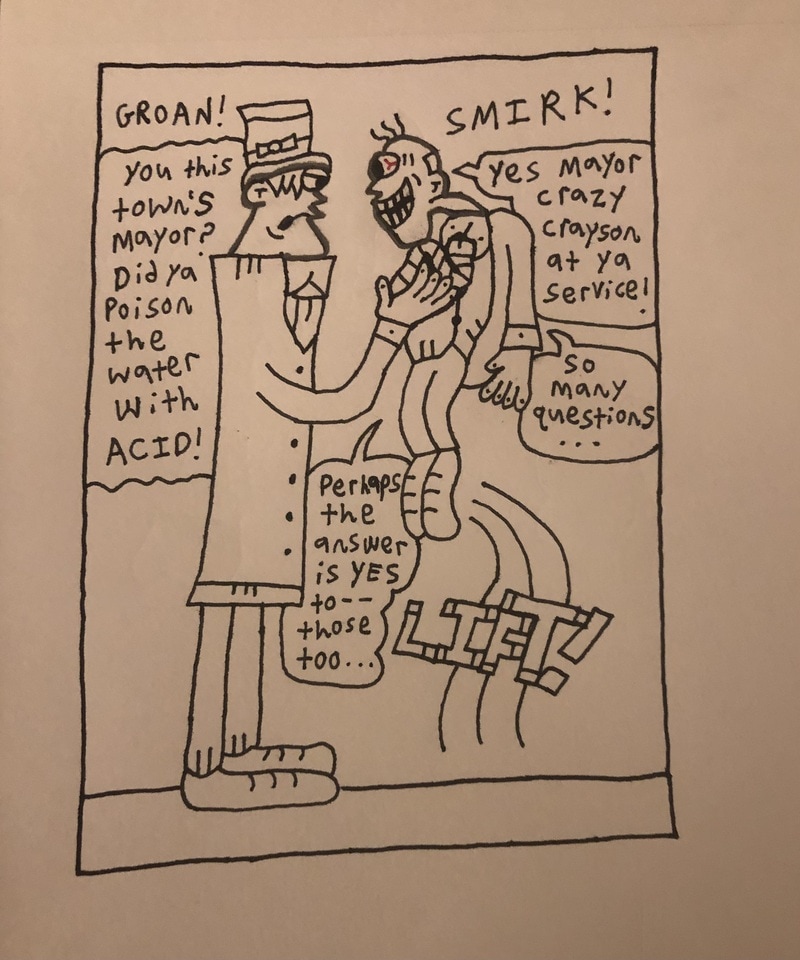 GROAN!
you this
town's
Mayor?
Did ya
Poison
the
water
with
ACID!
SMIRK!
yes Mayor
crazy
crayson
at ya
service!
so
many
questions
...
Perhaps
the
answer
is YES
to--
those
too...
LIFT!